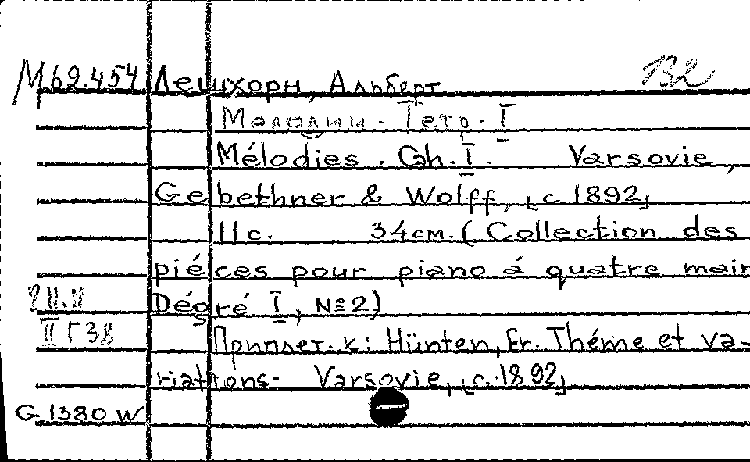 М 62.454 Лешхорн, Альберт В2
Мелодии. Тетр. I
Mélodies. Ch. I. Varsovie,
Gebethner & Wolff, [c. 1892]
11c. 34см. (Collection des
piéces pour piano á quatre main
Dégré I, №2)
II Г38
Приплет. к: Hünten, Fr. Théme et va-
riations. Varsovie, [c. 1892]
G. 1380 W